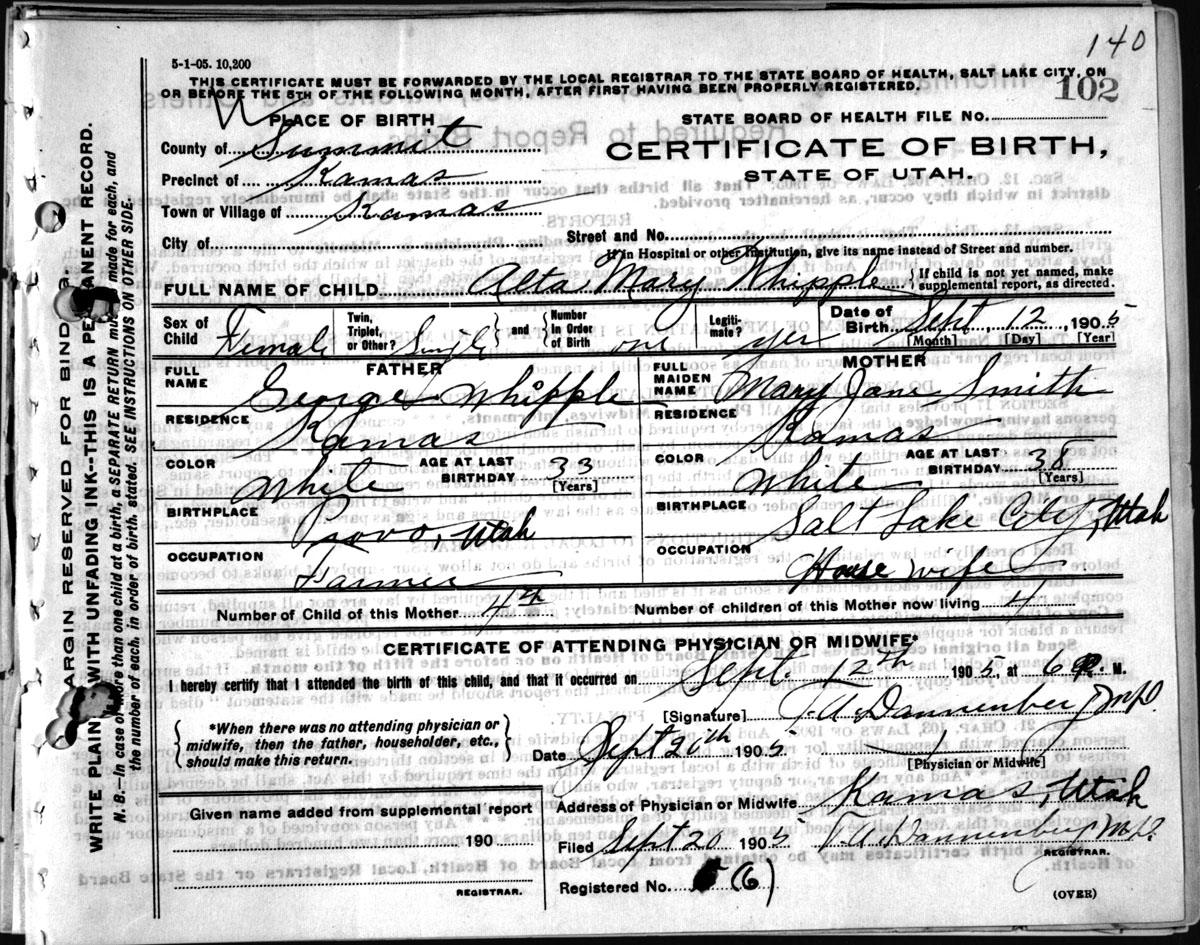 140
5-1-05. 10,200
THIS CERTIFICATE MUST BE FORWARDED BY THE LOCAL REGISTRAR TO THE STATE BOARD OF HEALTH, SALT LAKE CITY, ON
OR BEFORE THE 5TH OF THE FOLLOWING MONTH, AFTER FIRST HAVING BEEN PROPERLY REGISTERED.
102
PLACE OF BIRTH
STATE BOARD OF HEALTH FILE NO.
County of Summit
CERTIFICATE OF BIRTH,
Precinct of Kamas
STATE OF UTAH.
Town or Village of Kamas
City of
Street and No.
If in Hospital or other Institution, give its name instead of Street and number.
FULL NAME OF CHILD Alta Mary Whipple
If child is not yet named, make
supplemental report, as directed.
Sex of Child Female
Twin, Triplet, or Other? Single
and
Number In Order of Birth one
Legitimate? yes
Date of Birth Sept, 12, 1905
[Month] [Day] [Year]
FATHER
MOTHER
FULL NAME George Whipple
FULL MAIDEN NAME Mary Jane Smith
RESIDENCE Kamas
RESIDENCE Kamas
COLOR White
AGE AT LAST BIRTHDAY 33 [Years]
COLOR White
AGE AT LAST BIRTHDAY 38 [Years]
BIRTHPLACE Provo, Utah
BIRTHPLACE Salt Lake City, Utah
OCCUPATION Farmer
OCCUPATION House wife
Number of Child of this Mother 4th
Number of children of this Mother now living 4
CERTIFICATE OF ATTENDING PHYSICIAN OR MIDWIFE*
I hereby certify that I attended the birth of this child, and that it occurred on Sept. 12th 1905, at 6 P. M.
[Signature] T. A. Dannenberg M.D.
*When there was no attending physician or
midwife, then the father, householder, etc.,
should make this return.
Date Sept 20th 1905
[Physician or Midwife]
Given name added from supplemental report
190
Address of Physician or Midwife Kamas, Utah
Filed Sept 20 1905 T. A. Dannenberg M.D.
REGISTRAR.
REGISTRAR.
Registered No. (6)
(OVER)
MARGIN RESERVED FOR
WRITE PLAINLY WITH UNFADING INK--THIS IS A PERMANENT RECORD.
N. B.--In case of more than one child at a birth, a SEPARATE RETURN must be made for each, and
the number of each, in order of birth, stated. SEE INSTRUCTIONS ON OTHER SIDE.